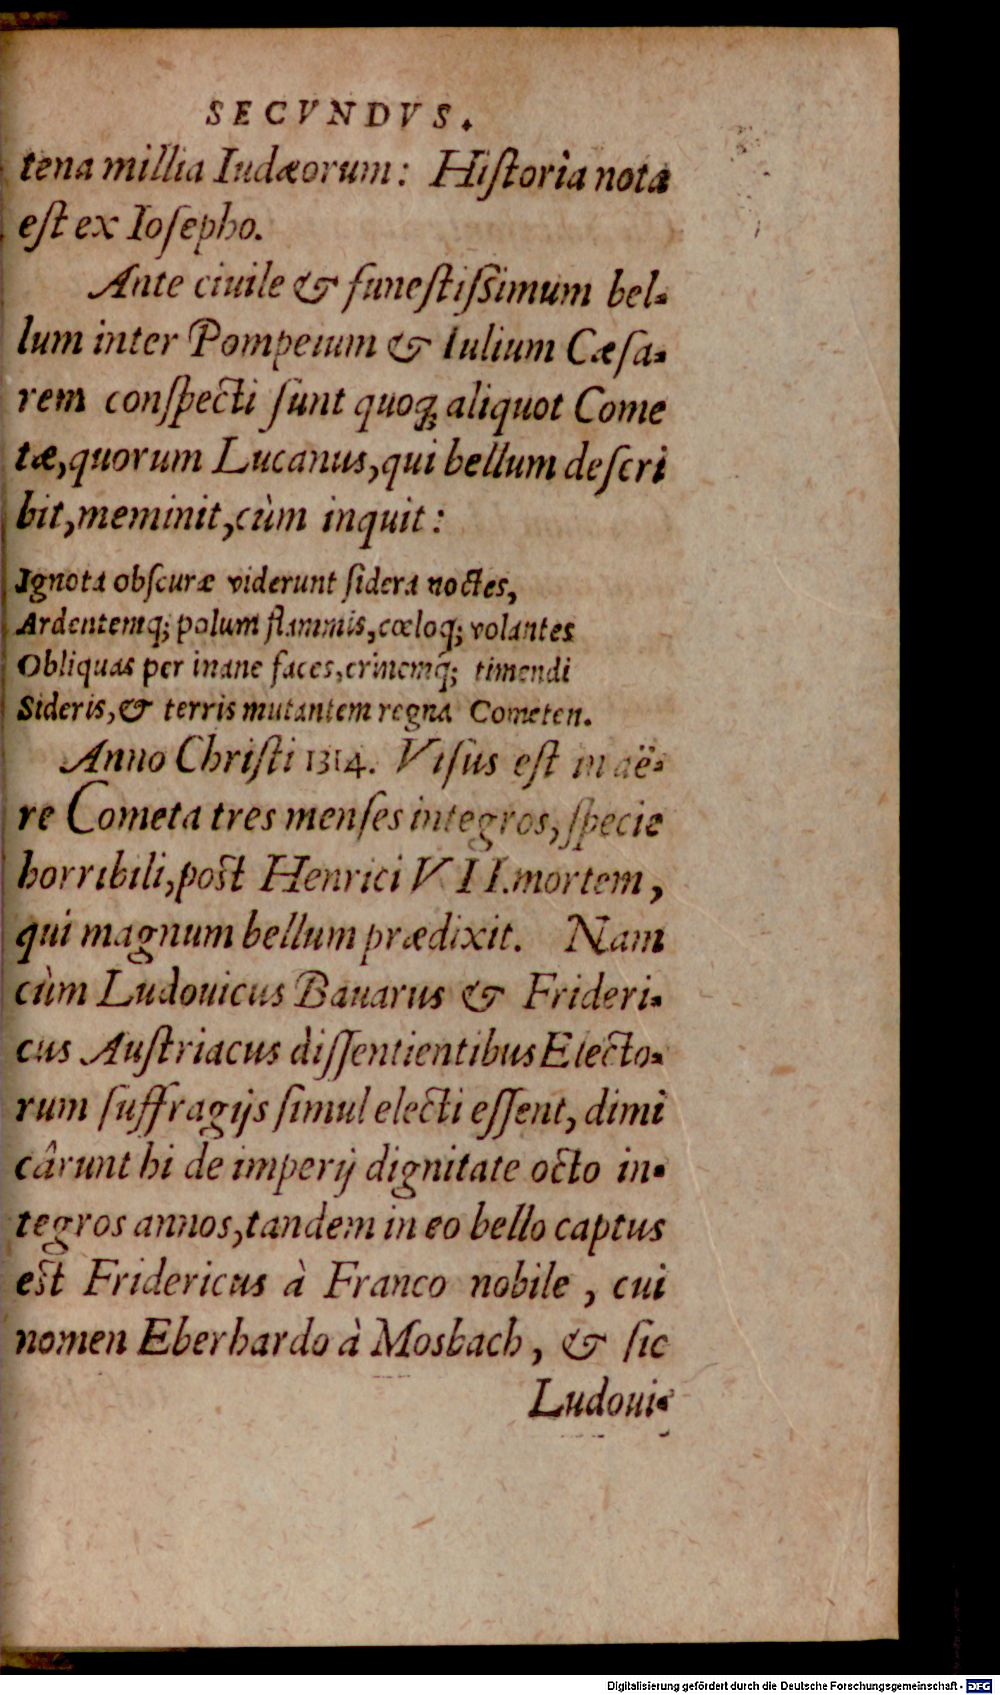 SECVNDVS.
tena millia Iudæorum: Hiſtoria nota
eſt ex Ioſepho.
Ante ciuile & funeſtiſſimum bel-
lum inter Pompeium & Iulium Cæſa-
rem conſpecti ſunt quoqꝫ aliquot Come
tæ, quorum Lucanus, qui bellum deſcri
bit, meminit, cùm inquit:
Ignota obſcuræ viderunt ſidera noctes,
Ardentemq; polum flammis, cœloq; volantes
Obliquas per inane faces, crinemq́; timendi
Sideris, & terris mutantem regna Cometen.
Anno Chriſti 1314. Viſus eſt in aë-
re Cometa tres menſes integros, ſpecie
horribili, poſt Henrici VII. mortem,
qui magnum bellum prædixit. Nam
cùm Ludouicus Bauarus & Frideri-
cus Auſtriacus diſſentientibus Electo-
rum ſuffragijs ſimul electi eſſent, dimi
cârunt hi de imperij dignitate octo in-
tegros annos, tandem in eo bello captus
eſt Fridericus à Franco nobile, cui
nomen Eberhardo à Mosbach, & ſic
Ludoui-
Digitalisierung gefördert durch die Deutsche Forschungsgemeinschaft - DFG